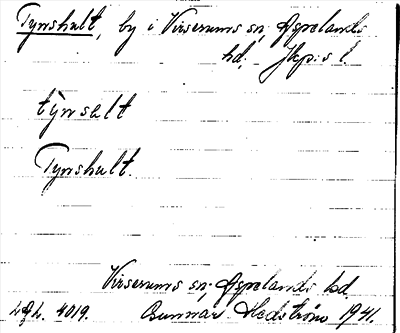 Tynshult, by i Virserums sn, Aspelands
hd. Jkp:s l.
tỳnsalt
Tynshult.
Virserums sn, Aspelands hd.
4019. Gunnar Hedström 1941.